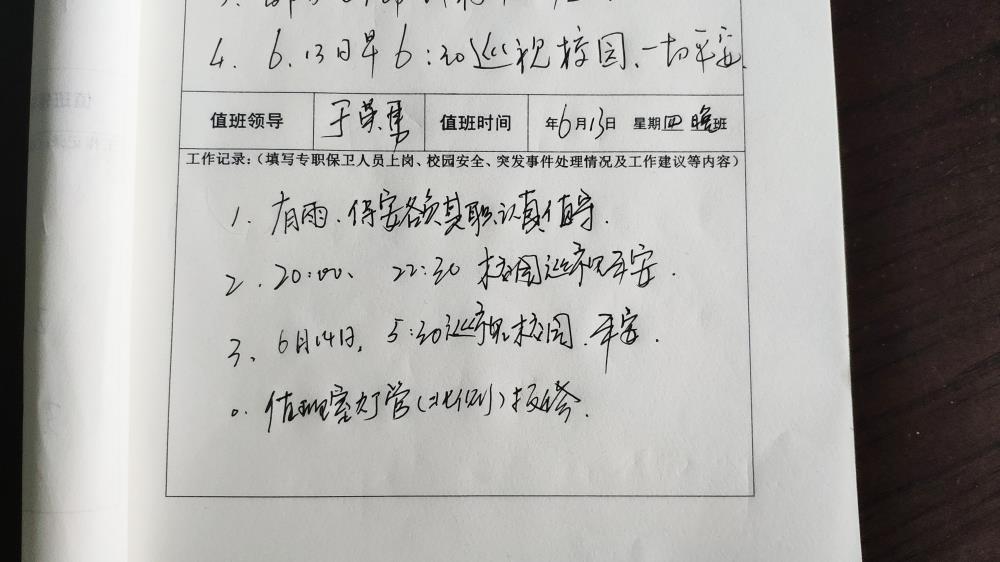 4. 6.13日早6:30巡视校园、一切平安.
值班领导 于荣勇 值班时间 年6月13日 星期四晚班
工作记录:(填写专职保卫人员上岗、校园安全、突发事件处理情况及工作建议等内容)
1. 有雨.保安各负其职认真值守.
2. 20:00、22:30 校园巡视平安.
3、6月14日, 5:30巡视校园.平安.
值班室灯管(北侧)报修.